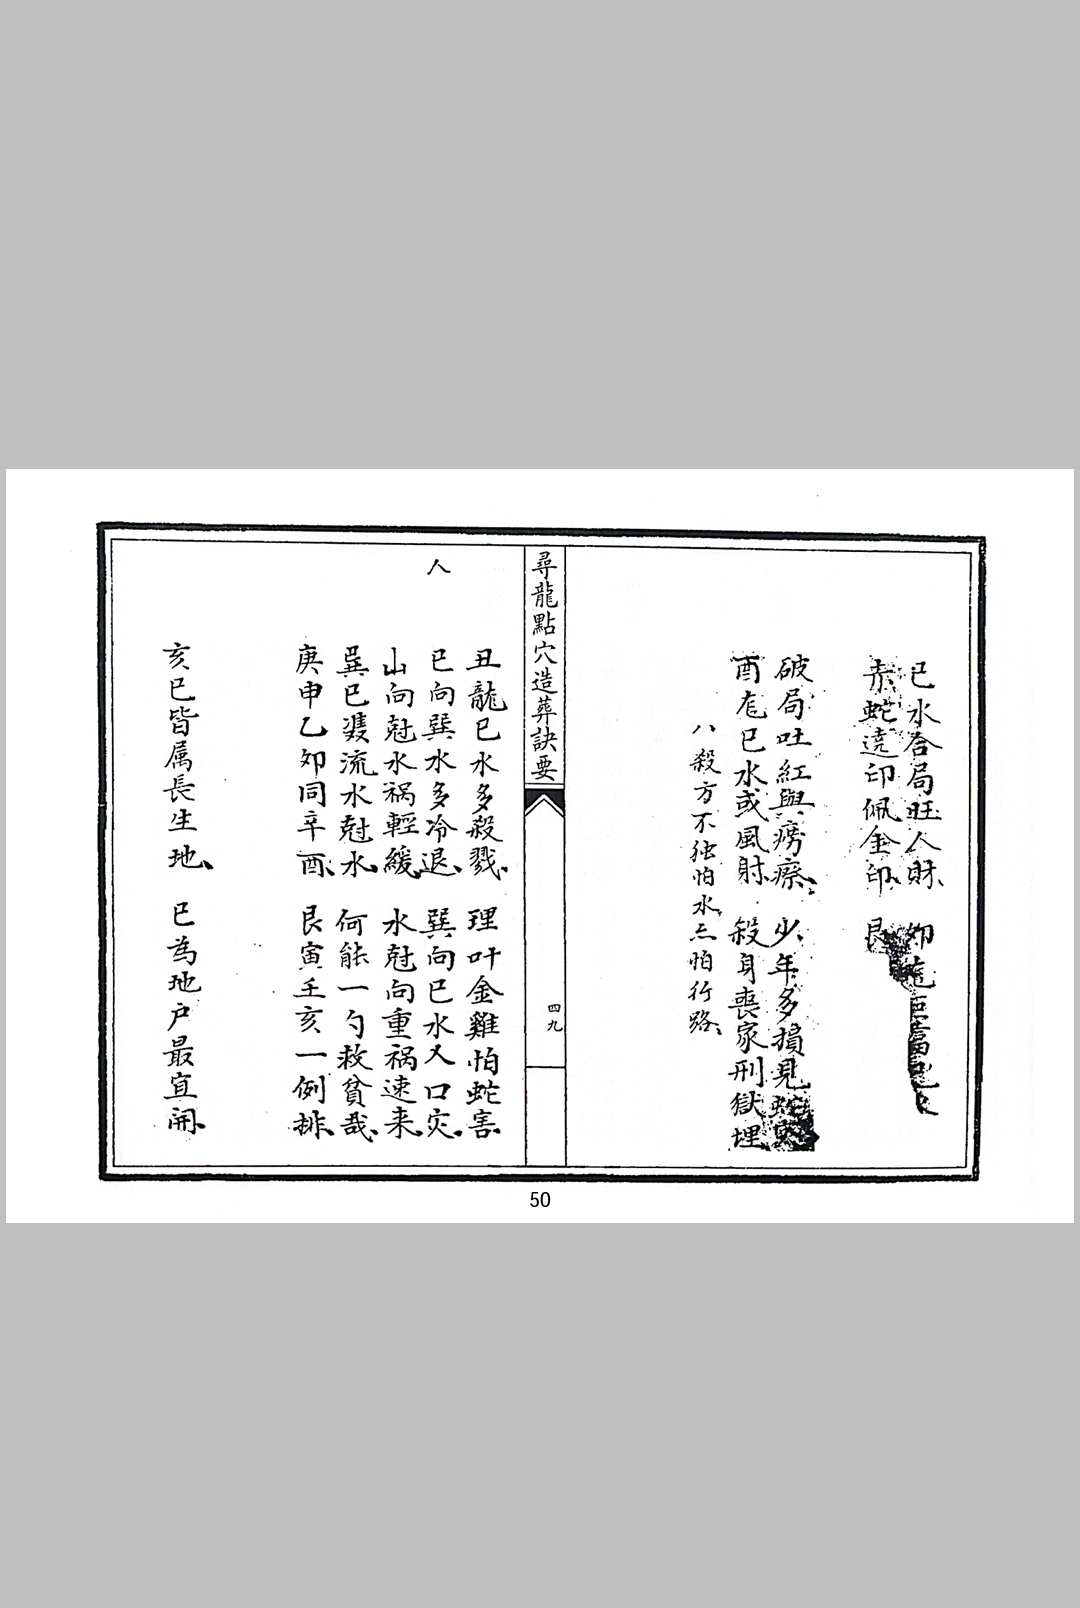 巳水合局旺人財、如
赤蛇遶印佩金印、艮
破局吐紅與癆瘵、少年多損見蛇
酉龙巳水或風射、殺身喪家刑獄埋
八殺方不独怕水、亦怕行路、
尋龍點穴造葬訣要
四九
人
丑龍巳水多殺戮、理叶金雞怕蛇害、
巳向巽水多冷退、巽向巳水人口灾、
山向尅水祸輕緩、水尅向重祸速来、
巽巳双流水尅水、何能一勺救貧哉、
庚申乙卯同辛酉、艮寅壬亥一例排、
亥巳皆属長生地、巳為地户最宜開、
50